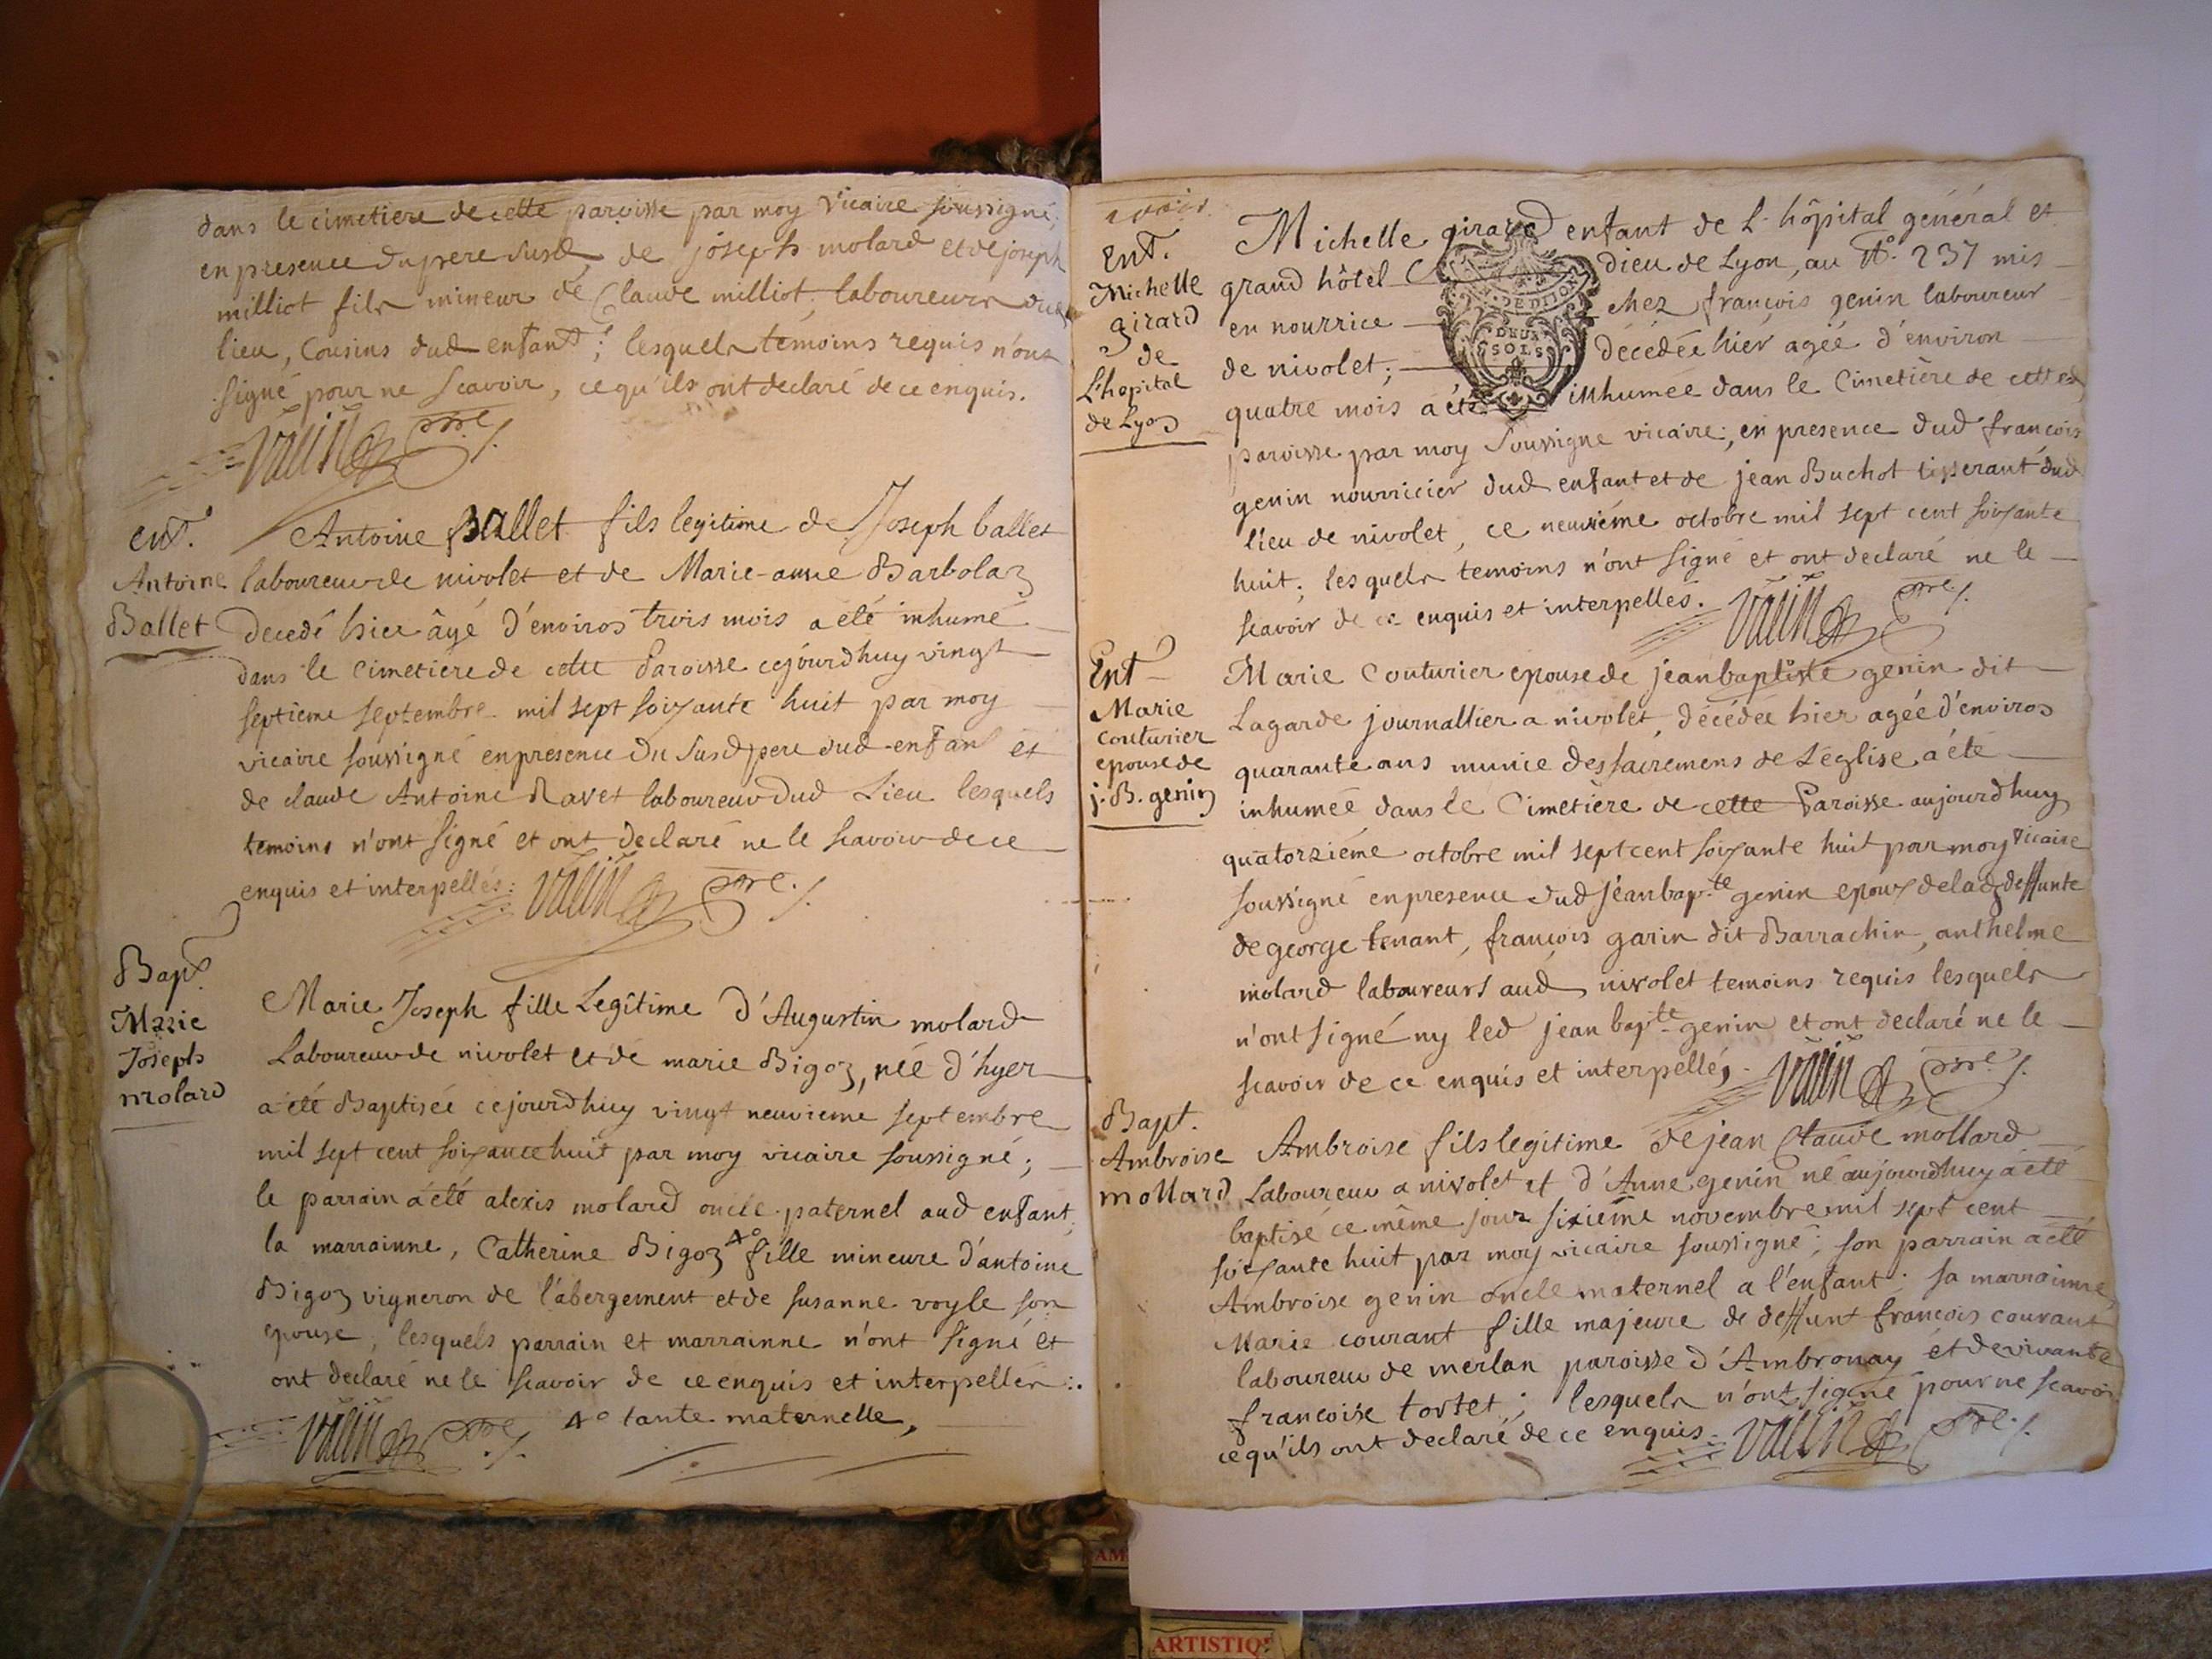 dans le cimetiere de cette paroisse par moy vicaire soussigné,
en presence du pere susd, de joseph molard et de joseph
milliot fils mineur de Claude milliot, laboureurs dud
lieu, Cousins dud enfant; lesquels temoins requis n'ont
signé pour ne scavoir, ce qu'ils ont declaré de ce enquis.
vallin ptre
ent.
Antoine
Ballet
Antoine Ballet fils legitime de Joseph ballet
laboureur de nivolet et de Marie-anne Barbolaz
decedé hier âgé d'environ trois mois a eté inhumé
dans le Cimetiere de cette Paroisse cejourdhuy vingt
septieme septembre mil sept soixante huit par moy
vicaire soussigné en presence du susd pere dud enfant et
de claude Antoine Ravet laboureur dud Lieu lesquels
temoins n'ont signé et ont declaré ne le scavoir de ce
enquis et interpellés: vallin ptre
Bapt.
Marie
Joseph
molard
Marie Joseph fille Legitime d'Augustin molard
Laboureur de nivolet et de marie Bigoz, née d'hyer
a eté Baptisée cejourdhuy vingt neuvieme septembre
mil sept cent soixante huit par moy vicaire soussigné;
le parrain a eté alexis molard oncle paternel aud enfant,
la marrainne, Catherine Bigoz 4° fille mineure d'antoine
Bigoz vigneron de l'abergement et de susanne voyle son
epouse, lesquels parrain et marrainne n'ont signé et
ont declaré ne le scavoir de ce enquis et interpellés:.
vallin ptre 4° tante maternelle,
ent.
Michelle
girard
de
L'hopital
de Lyon
Michelle girard enfant de L'hôpital général et
grand hôtel dieu de Lyon, au N°. 237 mis
en nourrice chez françois genin laboureur
de nivolet; décédée hier agée d'environ
quatre mois a été inhumée dans le Cimetière de cette
paroisse par moy soussigné vicaire; en presence dud françois
genin nourricier dud enfant et de jean Buchot tisserant dud
lieu de nivolet, ce neuvième octobre mil sept cent soixante
huit; lesquels temoins n'ont signé et ont declaré ne le
scavoir de ce enquis et interpellés. vallin ptre
DE DIJON
DEUX
SOLS
Ent
Marie
couturier
epouse de
j. B. genin
Marie Couturier epouse de jean baptiste genin dit
Lagarde journallier a nivolet, décédée hier agée d'environ
quarante ans munie des sacremens de L'église, a été
inhumée dans le Cimetière de cette Paroisse aujourdhuy
quatorzième octobre mil sept cent soixante huit par moy vicaire
soussigné en presence dud jean bap.te genin epoux de lad deffunte
de george tenant, françois garin dit Barrachin, anthelme
molard laboureurs aud nivolet temoins requis lesquels
n'ont signé ny led jean bapte genin et ont declaré ne le
scavoir de ce enquis et interpellés. vallin ptre
Bapt.
Ambroise
mollard
Ambroise fils legitime de jean Claude mollard
Laboureur a nivolet et d'Anne genin né aujourdhuy a eté
baptisé ce même jour sixième novembre mil sept cent
soixante huit par moy vicaire soussigné; son parrain a eté
Ambroise genin oncle maternel a l'enfant; sa marrainne,
Marie courant fille majeure de deffunt francois courant
laboureur de merlan paroisse d'Ambronay et de vivante
francoise tortet; lesquels n'ont signé pour ne scavoir
ce qu'ils ont declaré de ce enquis. vallin ptre
ARTISTIQ